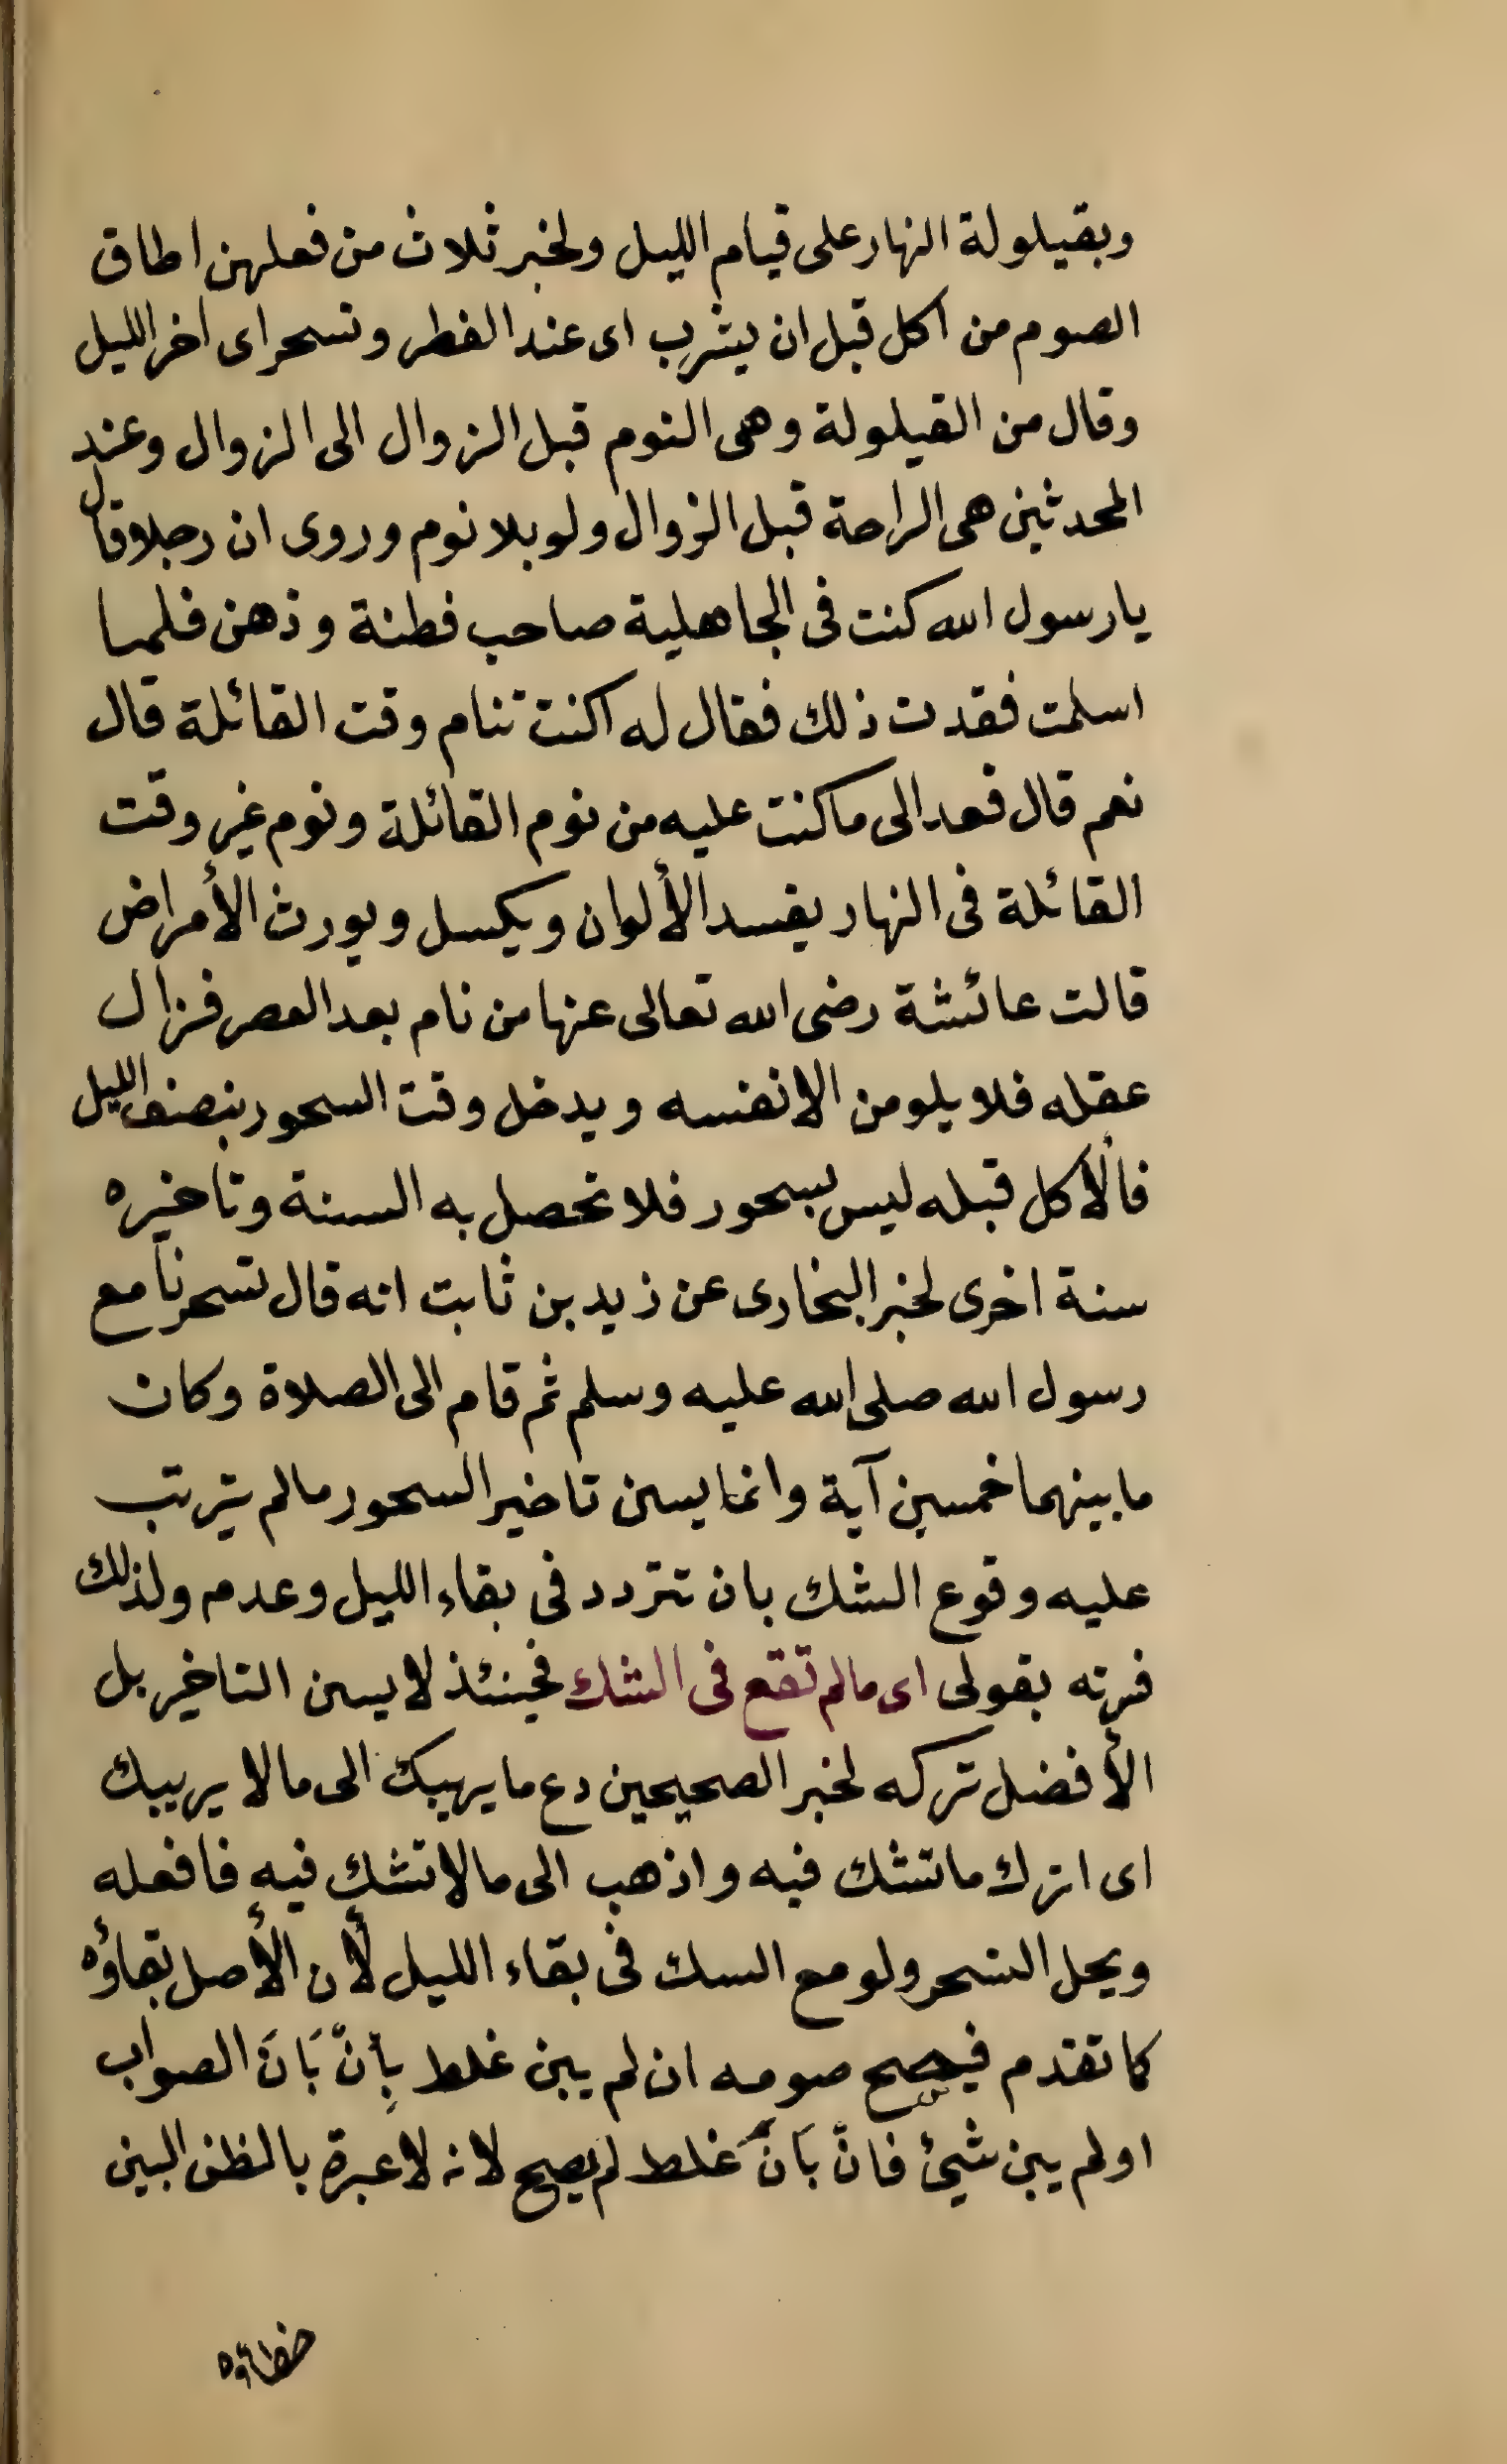 وبقيلولة النهار على قيام الليل ولخبر ثلاث من فعلهن اطاق
الصوم من اكل قبل ان يشرب اى عند الفطر وتسحر اى اخر الليل
وقال من القيلولة وهى النوم قبل الزوال الى الزوال وعند
المحدثين هى الراحة قبل الزوال ولو بلا نوم وروى ان رجلا قال
يا رسول الله كنت فى الجاهلية صاحب فطنة وذهن فلما
اسلمت فقدت ذلك فقال له اكنت تنام وقت القائلة قال
نعم قال فعد الى ما كنت عليه من نوم القائلة ونوم غير وقت
القائلة فى النهار يفسد الألوان ويكسل ويورث الأمراض
قالت عائشة رضى الله تعالى عنها من نام بعد العصر فزال
عقله فلا يلومن الا نفسه ويدخل وقت السحور بنصف الليل
فالأكل قبله ليس بسحور فلا تحصل به السنة وتاخيره
سنة اخرى لخبر البخارى عن زيد بن ثابت انه قال تسحرنا مع
رسول الله صلى الله عليه وسلم ثم قام الى الصلاة وكان
ما بينهما خمسين آية وانما يسن تاخير السحور ما لم يترتب
عليه وقوع الشك بان تتردد فى بقاء الليل وعدم ولذلك
فرته بقولى اى ما لم تقع فى الشك فحينئذ لا يسن التاخير بل
الأفضل تركه لخبر الصحيحين دع ما يريبك الى ما لا يريبك
اى اترك ما تشك فيه واذهب الى ما لا تشك فيه فافعله
ويحل التسحر ولو مع السك فى بقاء الليل لأن الأصل بقاؤه
كما تقدم فيصح صومه ان لم يبن غلط بِأنَّ بَانَ الصواب
او لم يبن شيئ فانَّ بَانَ غلط لم يصح لانه لا عبرة بالظن البين
خطاؤه